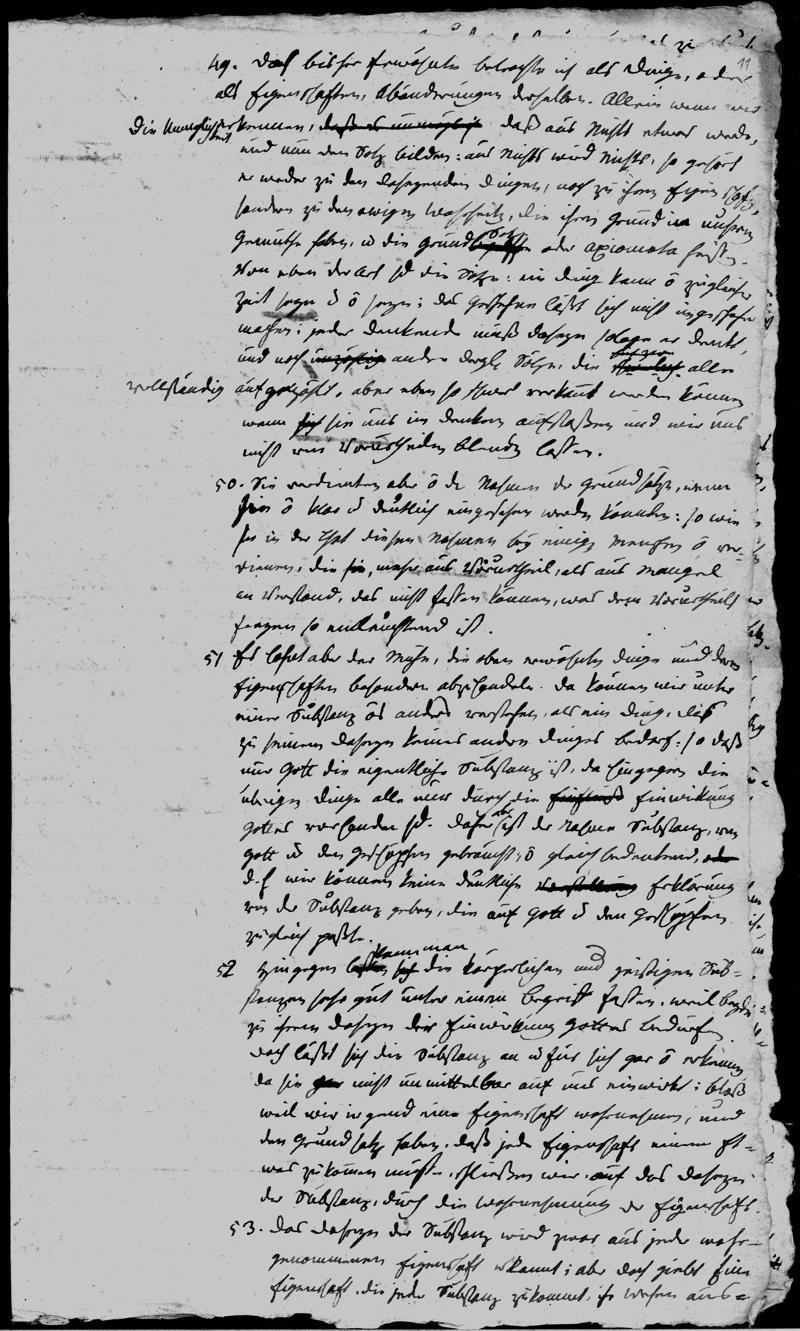 11
49. Das bisher erwähnte betrachte ich als Dinge, oder
als Eigenschaften, Abänderungen derselben. Allein wenn wir
Die Unmöglichkeit kennen, daß es unmöglich daß aus Nichts etwas werde,
und nun den Satz bilden: aus Nichts wird Nichts, so gehört
er weder zu den daseyenden Dingen, noch zu ihren Eigenschaft,
sondern zu den ewigen Wahrheiten, die ihren Grund in unserm
Gemüthe haben, u die Grundsätze oder axiomata heißen.
Von eben der Art sd die Sätze: ein Ding kann ō zugleicher
Zeit seyn u ō seyn; das Geschehene läßt sich nicht ungeschehen
machen; jeder Denkende muß daseyn solange er denkt,
und noch unzählig andre dergl. Sätze, die alle
vollständig aufgezählt, aber eben so schwer verkant werden können
wenn sich sie uns im denken aufstoßen und wir uns
nicht von Vorurtheilen blenden lassen.
50. Sie verdienten aber ō de Nahmen der Grundsätze, wenn
sie ō klar u deutlich eingesehen werden könnten: so wie
sie in der That diesen Nahmen bey einige Menschen ō ver-
dienen, die sie, mehr aus Vorurtheil, als aus Mangel
an Verstand, das nicht fassen können, was dem Vorurtheils
freyen so einleuchtend ist.
51 Es lohnt aber der Mühe, die oben erwähnten Dinge und deren
Eigenschaften besonders abzuhandeln. Da können wir unter
einer Substanz ōs anders verstehen, als ein Ding, das
zu seinem Daseyn keines andern Dinges bedarf: so daß
nur Gott die eigentliche Substanz ist, da hingegen die
übrigen Dinge alle nur durch die Einwirkung
Gottes vorhanden sd. Daher ist der Nahme Substanz, von
Gott u den Geschöpfen gebraucht, ō gleichbedeutend, oder
d. h wir können keine deutliche Vorstellung Erklärung
von der Substanz geben, die auf Gott u den Geschöpfen
zugleich paßte.
52 Hingegen kann man die körperlichen und geistigen Sub-
stanzen sehr gut unter einem Begriff fassen, weil beyde
zu ihrem Daseyn der Einwirkung Gottes bedürfen.
Doch läßt sich die Substanz an u für sich gar ō erkennen
da sie gar nicht unmittelbar auf uns einwirkt; bloß
weil wir irgend eine Eigenschaft wahrnehmen, und
den Grundsatz haben, daß jede Eigenschaft einem Et-
was zukommen müsse, schließen wir auf das Daseyn
der Substanz, durch die Wahrnehmung der Eigenschaft.
53. Das Daseyn der Substanz wird zwar aus jeder wahr-
genommenen Eigenschaft erkannt; aber doch giebt Eine
Eigenschaft, die jeder Substanz zukommet, ihr Wesen aus=